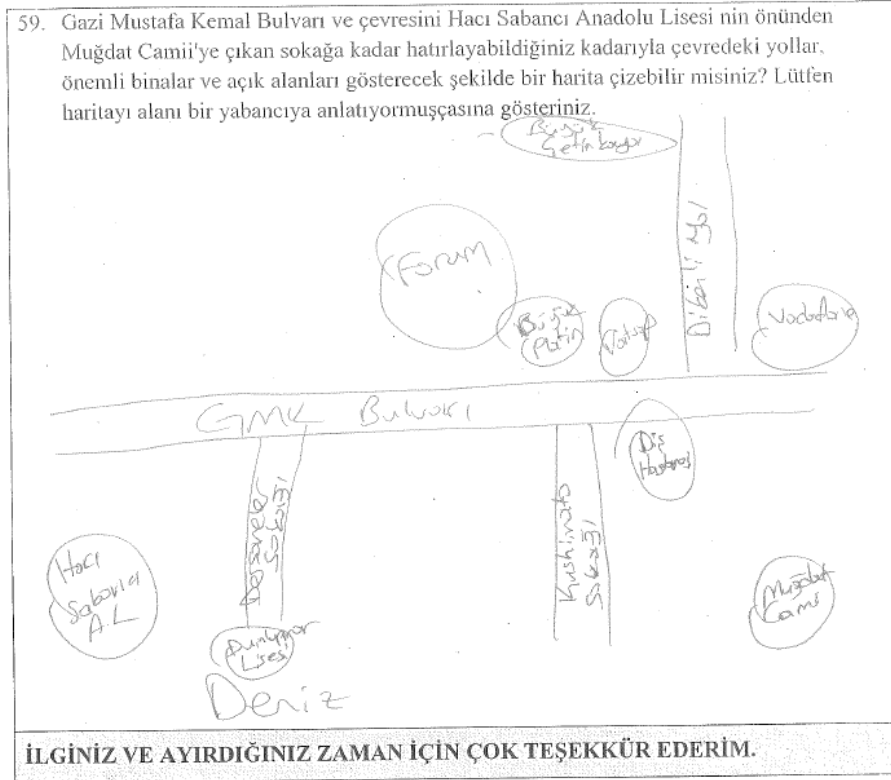 59. Gazi Mustafa Kemal Bulvarı ve çevresini Hacı Sabancı Anadolu Lisesi nin önünden
Muğdat Camii'ye çıkan sokağa kadar hatırlayabildiğiniz kadarıyla çevredeki yollar,
önemli binalar ve açık alanları gösterecek şekilde bir harita çizebilir misiniz? Lütfen
haritayı alanı bir yabancıya anlatıyormuşçasına gösteriniz.
Büyük
Çetinkaya
Forum
Büyük
Platin
Dikenli Yol
Vodafone
GMK Bulvarı
Diş
Hastanesi
Dershaneler
Sokağı
Kushimato
Sokağı
Hacı
Sabancı
A.L
Muğdat
Cami
Dumlupınar
Lisesi
Deniz
İLGİNİZ VE AYIRDIĞINIZ ZAMAN İÇİN ÇOK TEŞEKKÜR EDERİM.